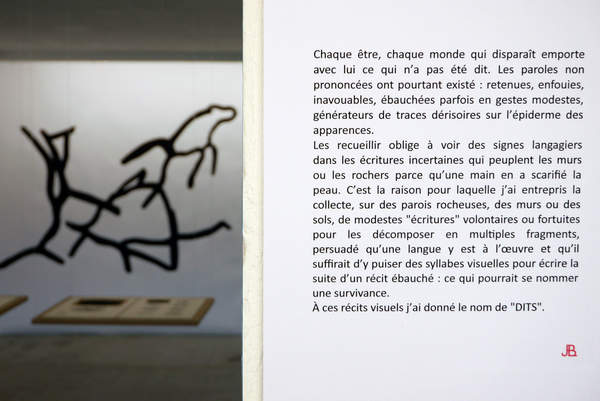 Chaque être, chaque monde qui disparaît emporte
avec lui ce qui n’a pas été dit. Les paroles non
prononcées ont pourtant existé : retenues, enfouies,
inavouables, ébauchées parfois en gestes modestes,
générateurs de traces dérisoires sur l’épiderme des
apparences.
Les recueillir oblige à voir des signes langagiers
dans les écritures incertaines qui peuplent les murs
ou les rochers parce qu’une main en a scarifié la
peau. C’est la raison pour laquelle j’ai entrepris la
collecte, sur des parois rocheuses, des murs ou des
sols, de modestes "écritures" volontaires ou fortuites
pour les décomposer en multiples fragments,
persuadé qu’une langue y est à l’œuvre et qu’il
suffirait d’y puiser des syllabes visuelles pour écrire la
suite d’un récit ébauché : ce qui pourrait se nommer
une survivance.
À ces récits visuels j’ai donné le nom de "DITS".
JB